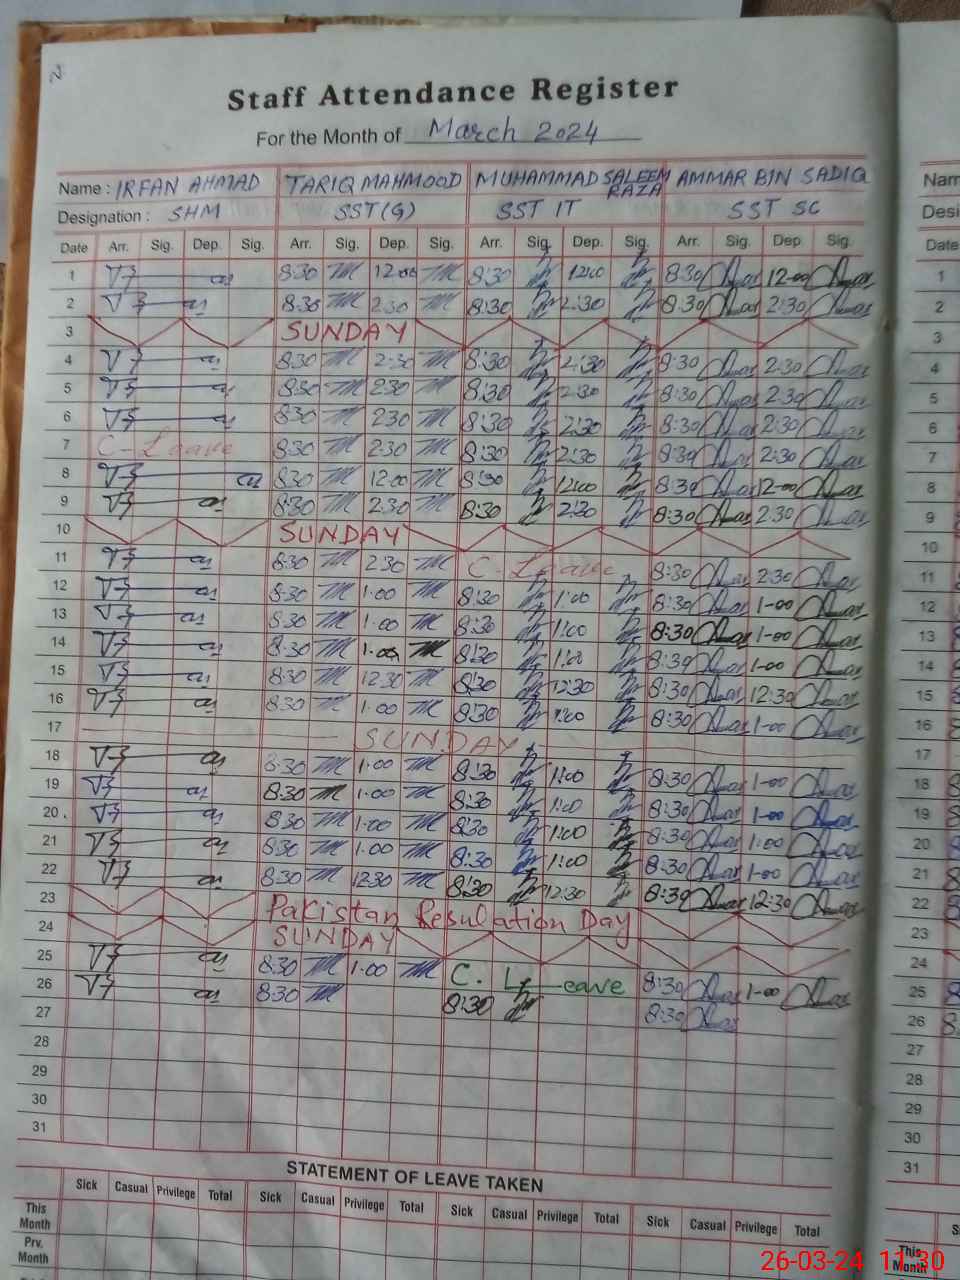 Staff Attendance Register
For the Month of March 2024
Name : IRFAN AHMAD TARIQ MAHMOOD MUHAMMAD SALEEM RAZA AMMAR BIN SADIQ
Designation : SHM SST(G) SST IT SST SC
Date Arr. Sig. Dep. Sig. Arr. Sig. Dep. Sig. Arr. Sig. Dep. Sig. Arr. Sig. Dep Sig.
1 8:30 12:00 8:30 12:00 8:30 12-00
2 8:30 2:30 8:30 2:30 8:30 2:30
3 SUNDAY
4 8:30 2:30 8:30 2:30 8:30 2:30
5 8:30 2:30 8:30 2:30 8:30 2:30
6 8:30 2:30 8:30 2:30 8:30 2:30
7 C-Leave 8:30 2:30 8:30 2:30 8:30 2:30
8 8:30 12:00 8:30 12:00 8:30 12-00
9 8:30 2:30 8:30 2:30 8:30 2:30
10 SUNDAY
11 8:30 2:30 C-Leave 8:30 2:30
12 8:30 1.00 8:30 1:00 8:30 1-00
13 8:30 1.00 8:30 1:00 8:30 1-00
14 8:30 1.00 8:30 1:00 8:30 1-00
15 8:30 12:30 8:30 12:30 8:30 12:30
16 8:30 1.00 8:30 1:00 8:30 1-00
17 SUNDAY
18 8:30 1.00 8:30 1:00 8:30 1-00
19 8:30 1.00 8:30 1:00 8:30 1-00
20 8:30 1.00 8:30 1:00 8:30 1:00
21 8:30 1.00 8:30 1:00 8:30 1-00
22 8:30 12:30 8:30 12:30 8:30 12:30
23 Pakistan Resulation Day
24 SUNDAY
25 8:30 1.00 C. Leave 8:30 1-00
26 8:30 8:30 8:30
27
28
29
30
31
STATEMENT OF LEAVE TAKEN
Sick Casual Privilege Total Sick Casual Privilege Total Sick Casual Privilege Total Sick Casual Privilege Total
This Month
Prv. Month
Date
1
2
3
4
5
6
7
8
9
10
11
12
13
14
15
16
17
18
19
20
21
22
23
24
25
26
27
28
29
30
31
This Month
26-03-24 11:30